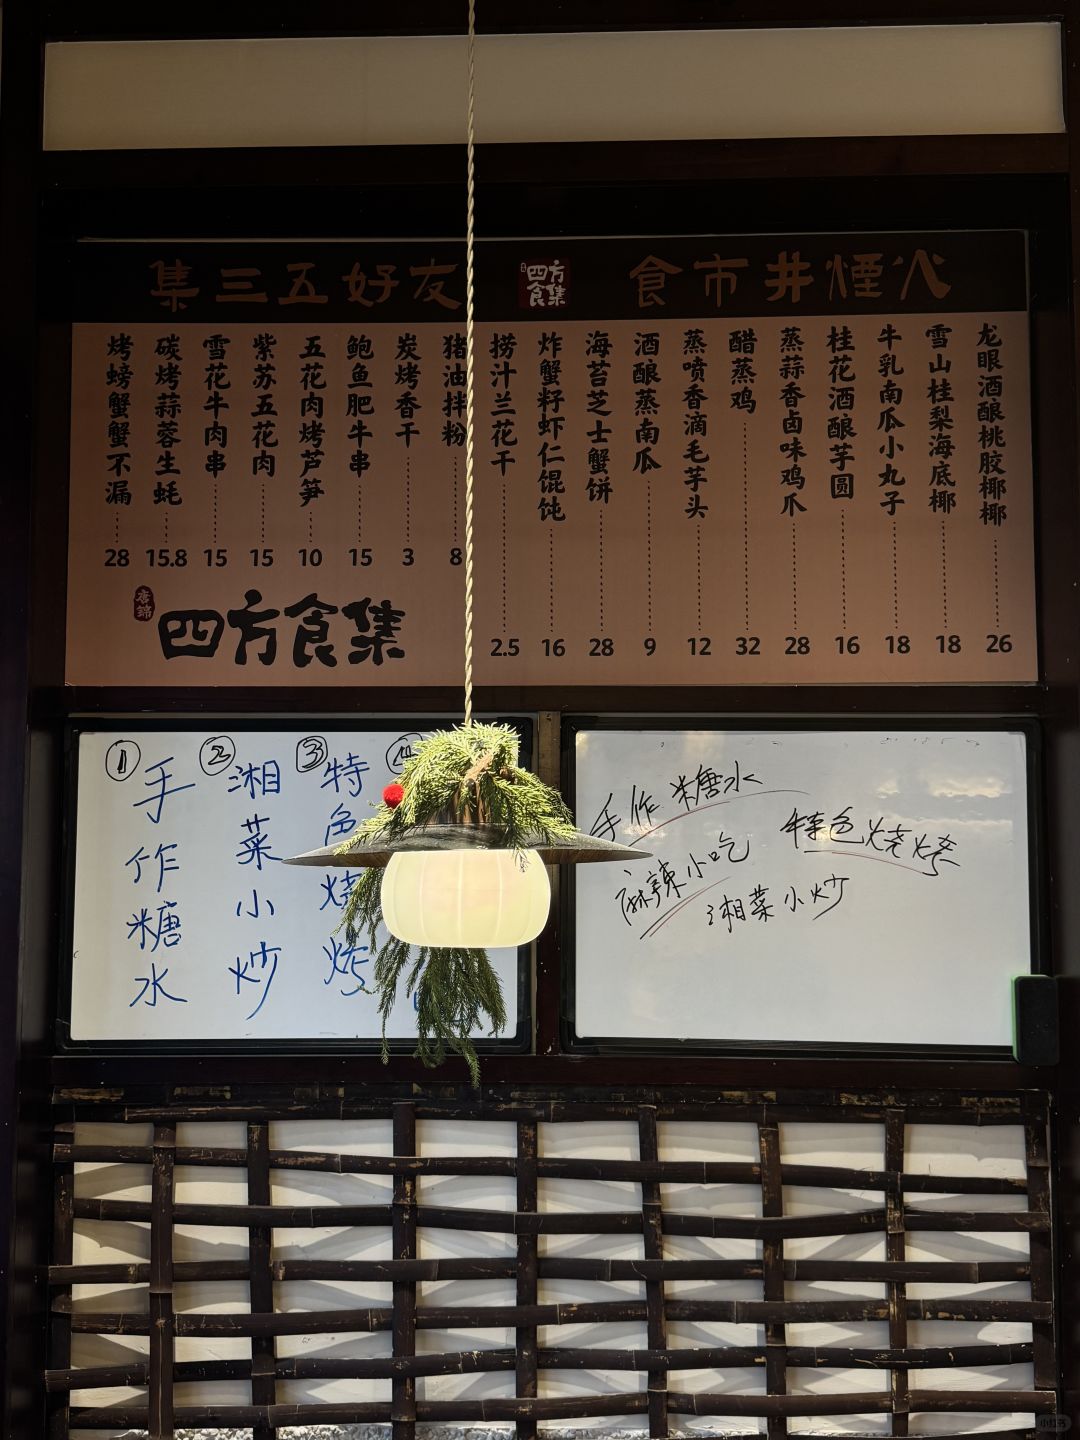 集三五好友
四方食集
食市井煙火
烤螃蟹蟹不漏 28
碳烤蒜蓉生蚝 15.8
雪花牛肉串 15
紫苏五花肉 15
五花肉烤芦笋 10
鲍鱼肥牛串 15
炭烤香干 3
猪油拌粉 8
捞汁兰花干 2.5
炸蟹籽虾仁馄饨 16
海苔芝士蟹饼 28
酒酿蒸南瓜 9
蒸喷香滴毛芋头 12
醋蒸鸡 32
蒸蒜香卤味鸡爪 28
桂花酒酿芋圆 16
牛乳南瓜小丸子 18
雪山桂梨海底椰 18
龙眼酒酿桃胶椰椰 26
唐錦
四方食集
①手作糖水
②湘菜小炒
③特色烧烤
手作糖水
特色烧烤
麻辣小吃
湘菜小炒
小红书